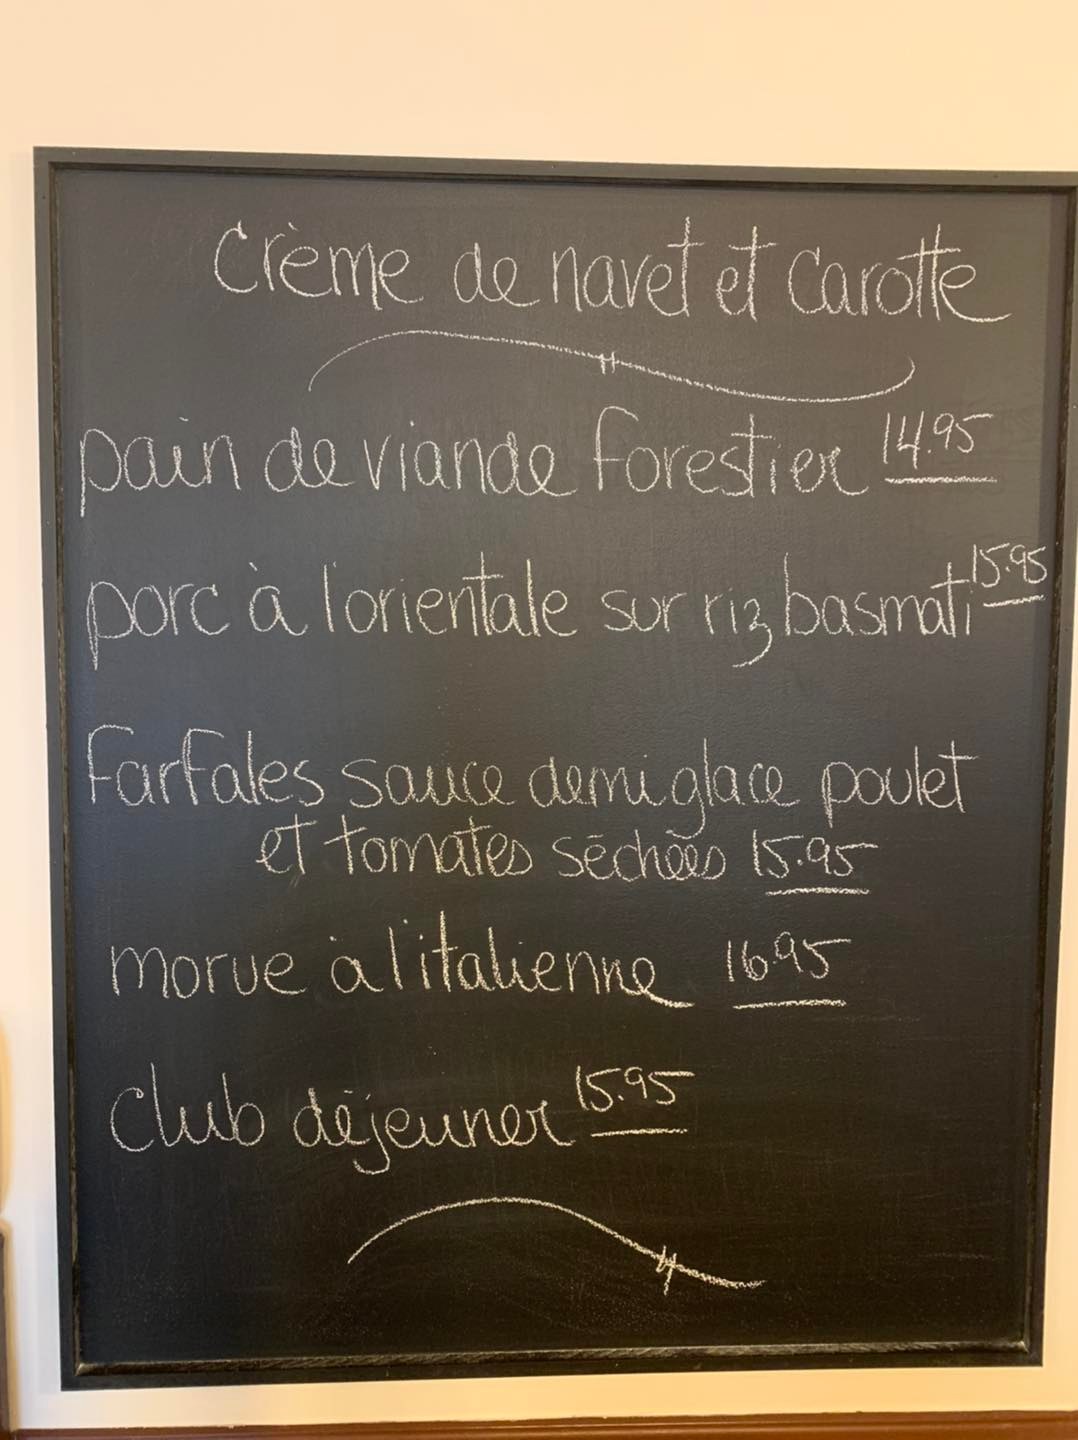 Crème de navet et carotte
pain de viande forestier 14.95
porc à l'orientale sur riz basmati 15.95
Farfales sauce demi glace poulet
et tomates séchées 15.95
morue à l'italienne 16.95
Club déjeuner 15.95